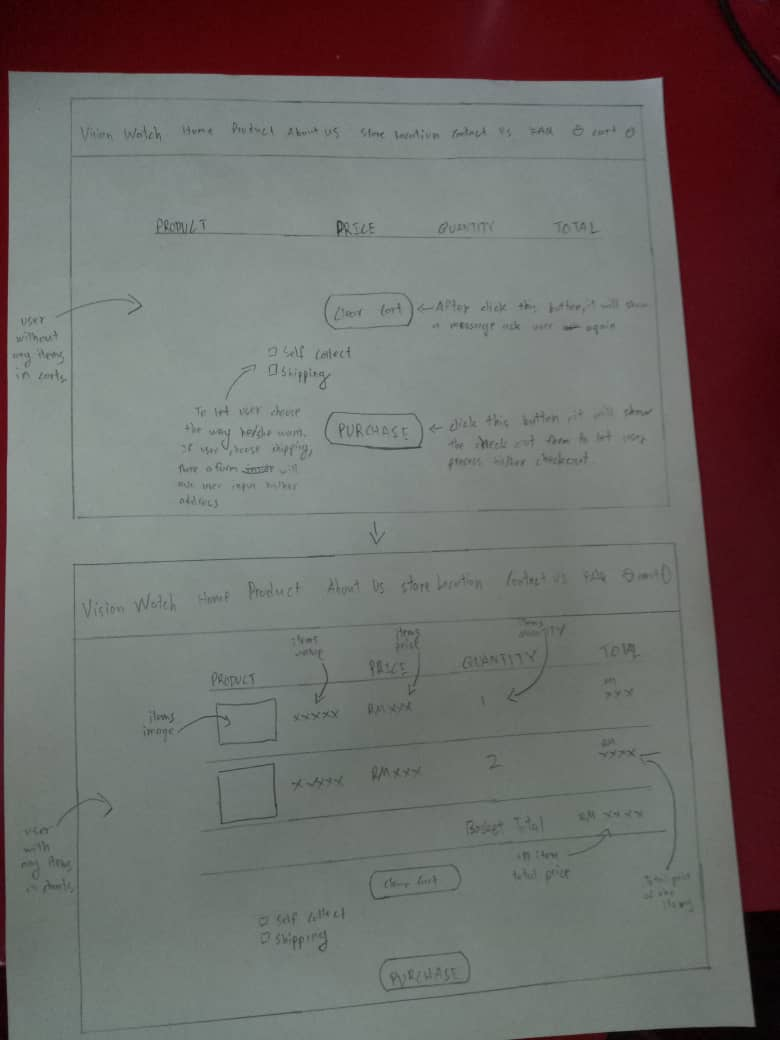 Vision Watch Home Product About Us Store Location Contact Us FAQ Cart
PRODUCT PRICE QUANTITY TOTAL
user
without
any items
in carts
Clear Cart
After click this button, it will show
a message ask user again
Self collect
Shipping
To let user choose
the way he/she want.
If user choose shipping,
there a form will
ask user input his/her
address
PURCHASE
click this button, it will show
the check out form to let user
process his/her checkout.
Vision Watch Home Product About Us Store Location Contact Us FAQ Cart
items
items
price
items
quantity
PRODUCT PRICE QUANTITY TOTAL
items
image
xxxxx RM xxx 1 RM
xxx
xxxxx RM xxx 2 RM
xxxx
user
with
any items
in carts
Basket Total RM xxxx
item
total price
Total price
of the
items
Clear Cart
Self collect
Shipping
PURCHASE